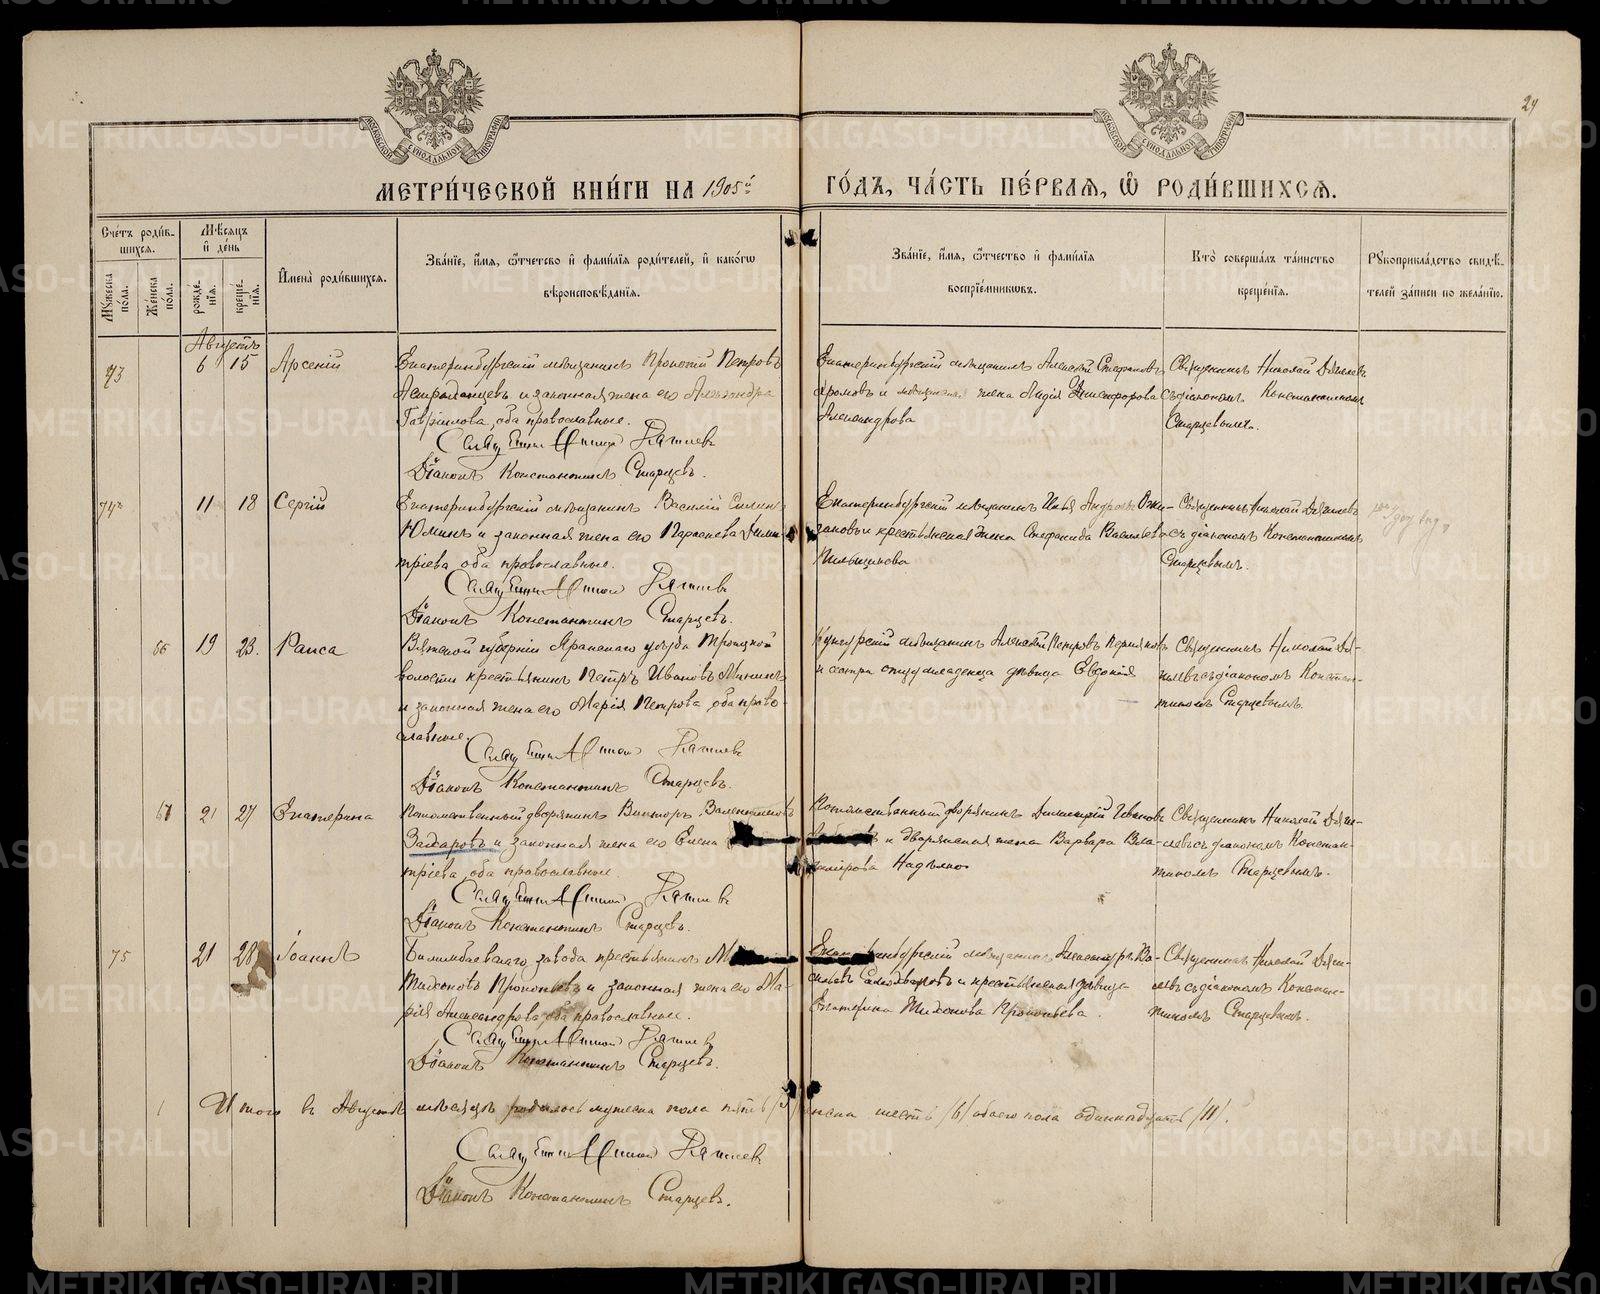 24
МОСКОВСКОЙ СѴНОДАЛЬНОЙ ТИПОГРАФІИ
МОСКОВСКОЙ СѴНОДАЛЬНОЙ ТИПОГРАФІИ
МЕТРИ́ЧЕСКОЙ КНИ́ГИ НА 1905й
ГО́ДЪ, ЧА́СТЬ ПЕ́РВАѦ, Ѡ҆ РОДИ́ВШИХСѦ.
Сче́тъ роди́в-
шихсѧ.
Мꙋжеска по́ла.
Же́нска по́ла.
Мѣ́сѧцъ
и҆ де́нь
рожде́-
нїѧ.
креще́-
нїѧ.
И҆мена̀ роди́вшихсѧ.
Зва́нїе, и҆́мѧ, ѻ҆́тчетсво и҆ фами́лїѧ роди́телей, и҆ како́гѡ
вѣроисповѣ́данїѧ.
Зва́нїе, и҆́мѧ, ѻ҆́тчество и҆ фами́лїѧ
воспрїе́мникѡвъ.
Кто̀ соверша́лъ та́инство
креще́нїѧ.
Рꙋкоприкла́дство свидѣ́-
телей за́писи по жела́нїю.
Августъ
73 6 15 Арсеній
Екатеринбургскій мѣщанинъ Прокопій Петровъ
и законная жена его Александра
Гаврилова, оба православные.
Священникъ Николай Дягилевъ
Діаконъ Константинъ Старцевъ.
Екатеринбургскій мѣщанинъ Алексѣй Стефановъ
и жена Лидія
Александрова
Священникъ Николай Дягилевъ
съ діакономъ Константиномъ
Старцевымъ.
74 11 18 Сергій
Екатеринбургскій мѣщанинъ Василій
Юминъ и законная жена его Параскева Дими-
тріева, оба православные.
Священникъ Николай Дягилевъ
Діаконъ Константинъ Старцевъ.
Екатеринбургскій мѣщанинъ Илья
и крестьянская жена Стефанида Васильева
Пильщикова
Священникъ Николай Дягилевъ
съ діакономъ Константиномъ
Старцевымъ.
66 19 23. Раиса
Вятской губерніи Яранскаго уѣзда Троицкой
волости крестьянинъ Петръ Ивановъ Мининъ
и законная жена его Марія Петрова, оба право-
славные.
Священникъ Николай Дягилевъ
Діаконъ Константинъ Старцевъ.
Кунгурскій мѣщанинъ Алексѣй Петровъ Пермяковъ
и сестра отцу младенца дѣвица Евдокія
Священникъ Николай Дя-
гилевъ съ діакономъ Констан-
тиномъ Старцевымъ.
67 21 27 Екатерина
Потомственный дворянинъ Викторъ Валентиновъ
Захаровъ и законная жена его Елена
тріева, оба православные.
Священникъ Николай Дягилевъ
Діаконъ Константинъ Старцевъ.
Потомственный дворянинъ Димитрій Ивановъ
и дворянская жена Варвара Вла-
димірова Надѣлко
Священникъ Николай Дяги-
левъ съ діакономъ Констан-
тиномъ Старцевымъ.
75 21 28 Іоаннъ
Билимбаевскаго завода крестьянинъ
Тихоновъ Прокопьевъ и законная жена его Ма-
рія Александрова, оба православные.
Священникъ Николай Дягилевъ
Діаконъ Константинъ Старцевъ.
Екатеринбургскій мѣщанинъ Александръ Ва-
сильевъ и крестьянская дѣвица
Екатерина Тихонова Прокопьева.
Священникъ Николай Дяги-
левъ съ діакономъ Констан-
тиномъ Старцевымъ.
Итого въ Августѣ мѣсяцѣ родилось мужеска пола пять /5/ женска шесть /6/ обоего пола одиннадцать /11/.
Священникъ Николай Дягилевъ
Діаконъ Константинъ Старцевъ.
METRIKI.GASO-URAL.RU